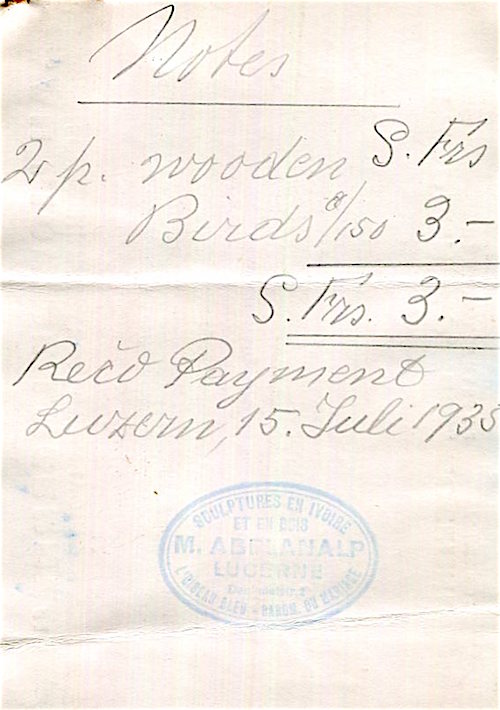 Notes
S. Frs
2 p. wooden
Birds a/150 3.-
S. Frs. 3.-
Rec̆d Payment
Luzern, 15. Juli 1935
SCULPTURES EN IVOIRE
ET EN BOIS
M. ABPLANALP
LUCERNE
L'OISEAU BLEU - BAROM. DU MARIAGE